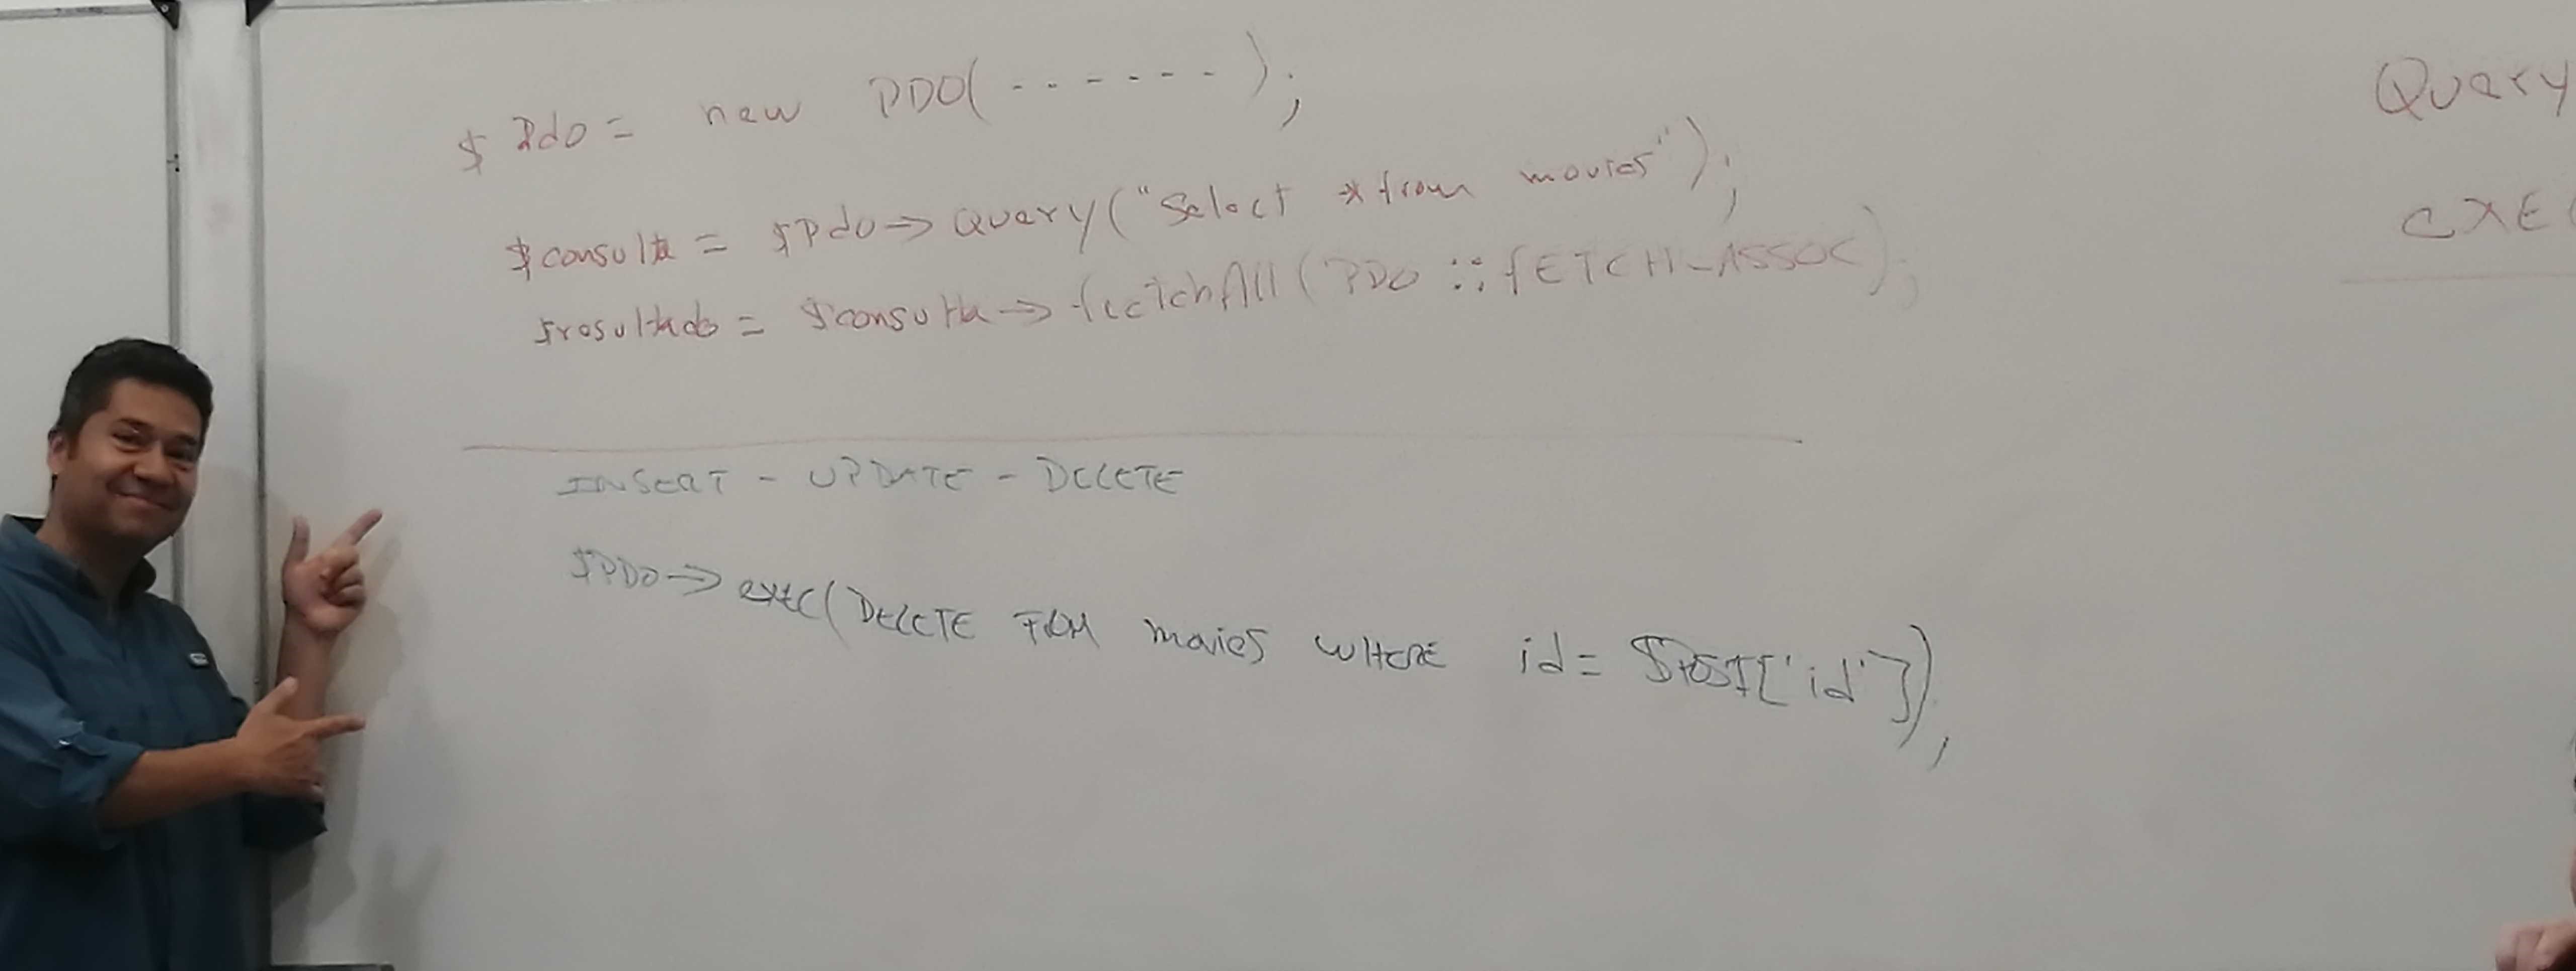 $Pdo = new PDO( - - - - - - );
$consulta = $Pdo -> Query("Select * from movies");
$resultado = $consulta -> fectchAll(PDO :: fETCH_ASSOC);
INSERT - UPDATE - DELETE
$PDO -> exec(DELETE FROM movies WHERE id = $POST['id']);
Query
EXE